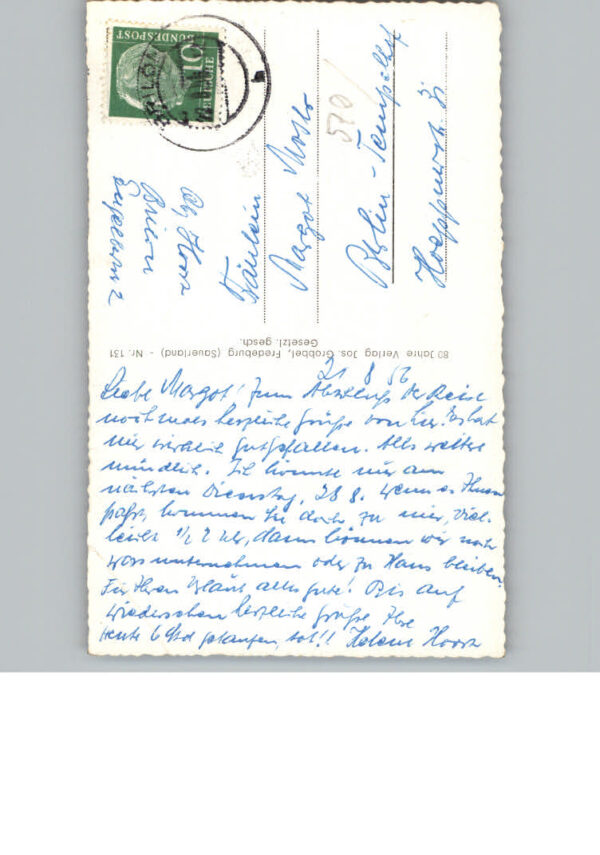 BRILON
10
DEUTSCHE
BUNDESPOST
Abs. Horst
Brilon
2
Fräulein
Margot
520
Berlin-Tempelhof
Hoeppnerstr. 31
80 Jahre Verlag Jos. Grobbel, Fredeburg (Sauerland) - Nr. 131
Gesetzl. gesch.
21 8 56
Liebe Margot! Zum Abschluß der Reise
nochmals herzliche Grüße von hier. Es hat
mir wirklich gut gefallen. Alles weitere
mündlich. Ich könnte nur am
nächsten Dienstag, 28 8. wenn es Ihnen
paßt, kommen Sie doch zu mir, viel-
leicht ½ 2 Uhr, dann können wir noch
was unternehmen oder zu Haus bleiben.
Für Ihren Urlaub alles gute! Bis auf
wiedersehen herzliche Grüße Ihre
heute 6 Std gelaufen, tot!! Helene Horst